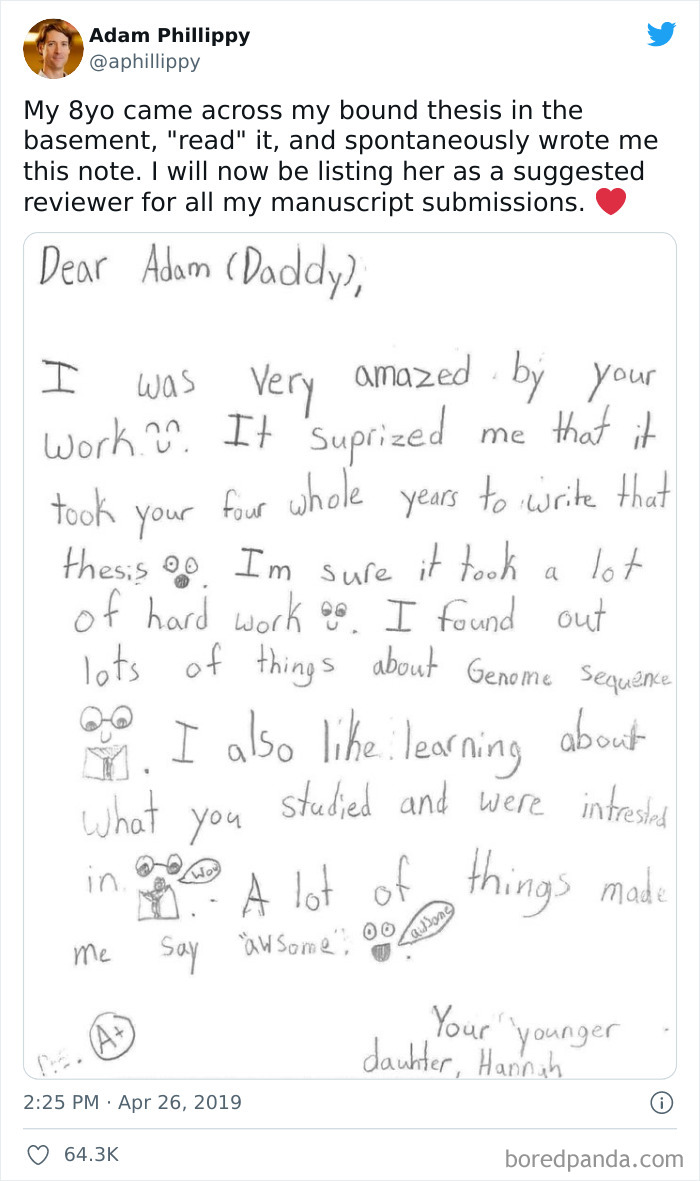 Adam Phillippy
@aphillippy
My 8yo came across my bound thesis in the
basement, "read" it, and spontaneously wrote me
this note. I will now be listing her as a suggested
reviewer for all my manuscript submissions. ❤️
Dear Adam (Daddy),
I was very amazed by your
work. It suprized me that it
took your four whole years to write that
thesis. Im sure it took a lot
of hard work. I found out
lots of things about Genome Sequence
. I also like learning about
what you studied and were intrested
in. Wow A lot of things made
me say "awsome". awsome
A+
Your younger
dauhter, Hannah
2:25 PM · Apr 26, 2019
64.3K
boredpanda.com